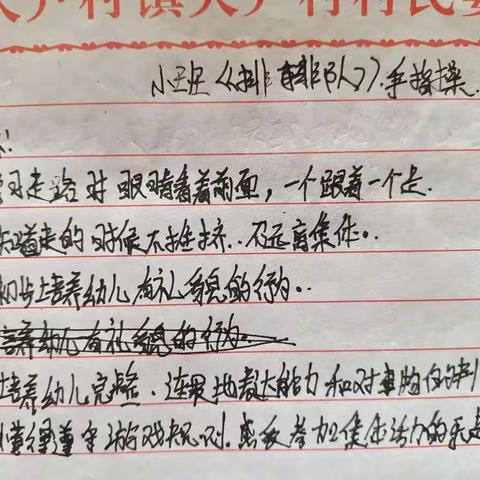 村镇大户村村民委
小班《排排队》.手指操.
习走路时眼睛看着前面，一个跟着一个走.
知道走的时候不拥挤..不远离集体..
初步培养幼儿有礼貌的行为..
培养幼儿有礼貌的行为.
培养幼儿完整.连贯地表达能力和对事物的判
懂得遵守游戏规则.感受参加集体活动的乐